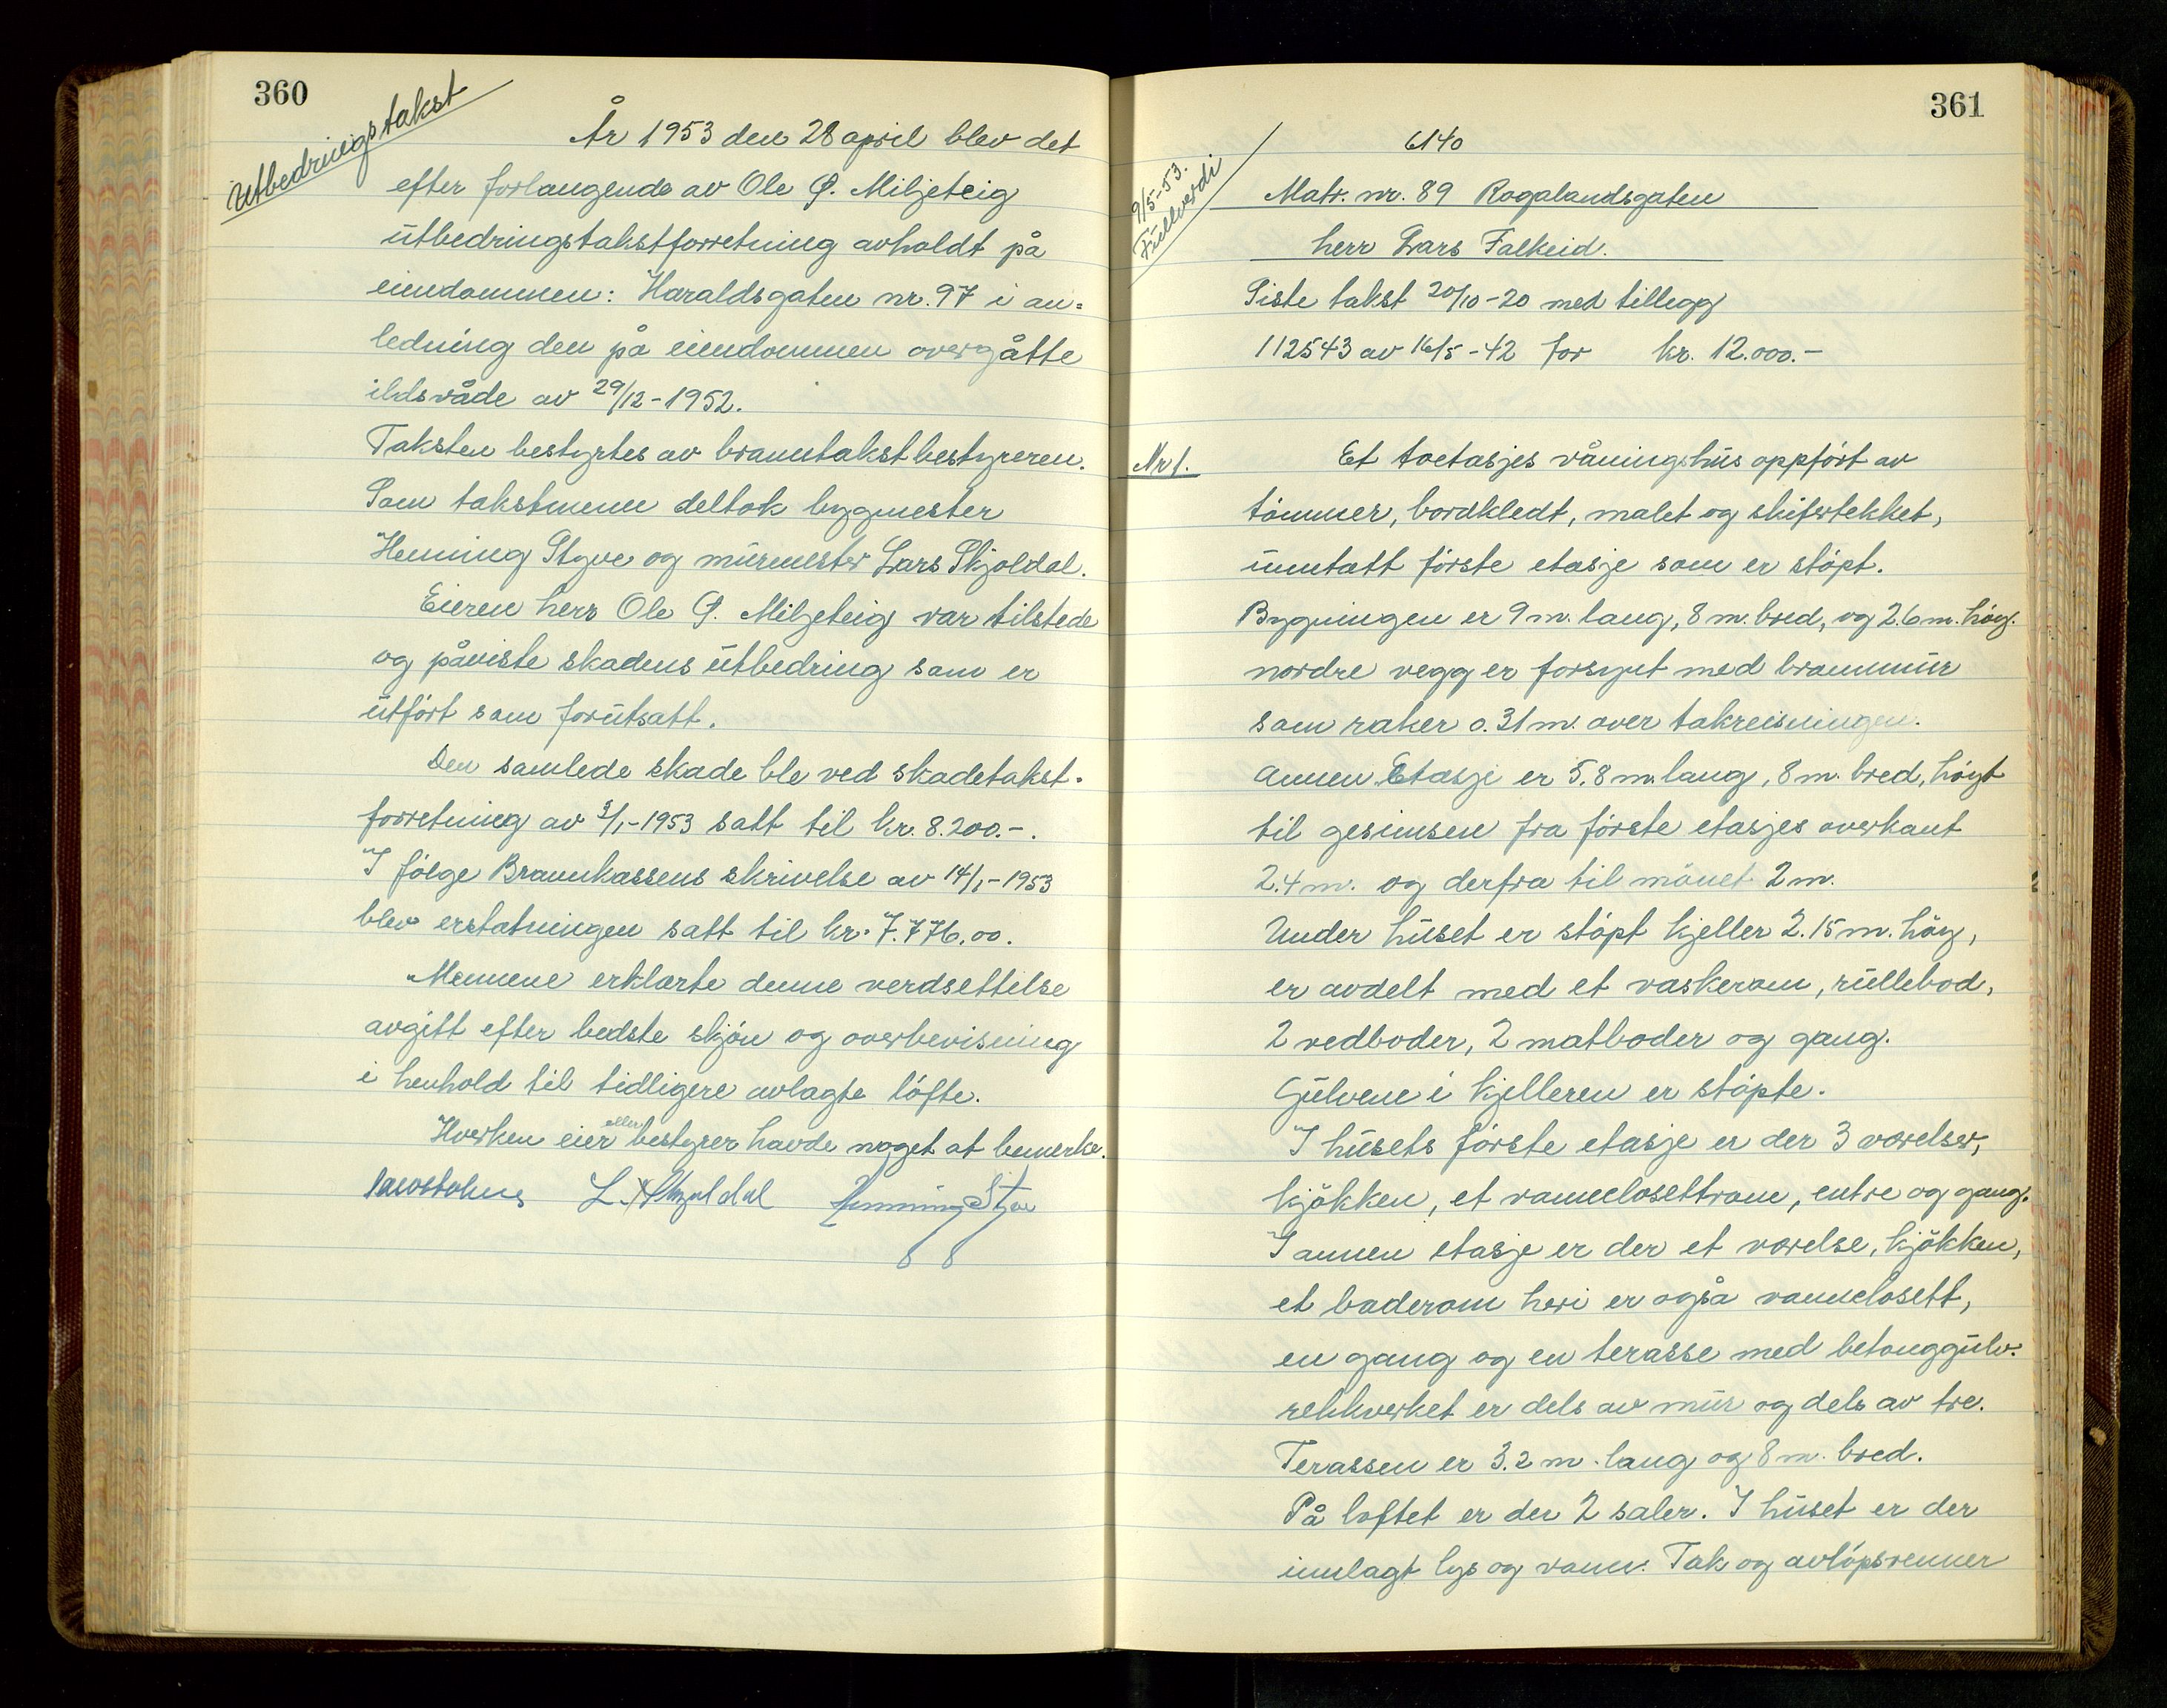 360
Utbedringstakst
År 1953 den 28 april blev det
efter forlangende av Ole G. Miljeteig
utbedringstakstforretning avholdt på
eiendommen: Haraldsgaten nr. 97 i an=
ledning den på eiendommen overgåtte
ildsvåde av 29/12-1952.
Taksten bestyrtes av branntakstbestyreren.
Som takstmenn deltok bygmester
Henning Styve og murmester Lars Skjoldal.
Eieren herr Ole G. Miljeteig var tilstede
og påviste skadens utbedring som er
utført som forutsatt.
Den samlede skade ble ved skadetakst-
forretning av 3/1-1953 satt til kr. 8.200.-.
I følge Brannkassens skrivelse av 14/1-1953
blev erstatningen satt til kr. 7.776,00.
Mennene erklærte denne verdsettelse
avgitt efter bedste skjøn og overbevisning
i henhold til tidligere avlagte løfte.
Hverken eier eller bestyrer havde noget at bemerke.
L. Skjoldal Henning Styve
361
6140
9/5-53.
Fullverdi
Matr. nr. 89 Rogalandsgaten
herr Lars Falkeid.
Siste takst 20/10-20 med tillegg
112543 av 16/5-42 for kr. 12.000.-
Nr 1.
Et toetasjes våningshus oppført av
tømmer, bordkledt, malet og skifertekket,
unntatt første etasje som er støpt.
Bygningen er 9 m. lang, 8 m. bred, og 2.6 m. høg.
nordre vegg er forsynt med brannmur
som raker 0.31 m. over takreisningen.
Annen Etasje er 5.8 m. lang, 8 m. bred, høgt
til gesimsen fra første etasjes overkant
2.4 m. og derfra til mønet 2 m.
Under huset er støpt kjeller 2.15 m. høg,
er avdelt med et vaskerom, rullebod,
2 vedboder, 2 matboder og gang.
Gulvene i kjelleren er støpte.
I husets første etasje er der 3 værelser,
kjøkken, et vannclosettrom, entre og gang.
I annen etasje er der et værelse, kjøkken,
et baderom heri er også vannclosett,
en gang og en terasse med betonggulv.
rekkverket er dels av mur og dels av tre.
Terassen er 3.2 m. lang og 8 m. bred.
På loftet er der 2 saler. I huset er der
innlagt lys og vann. Tak og avløpsrenner